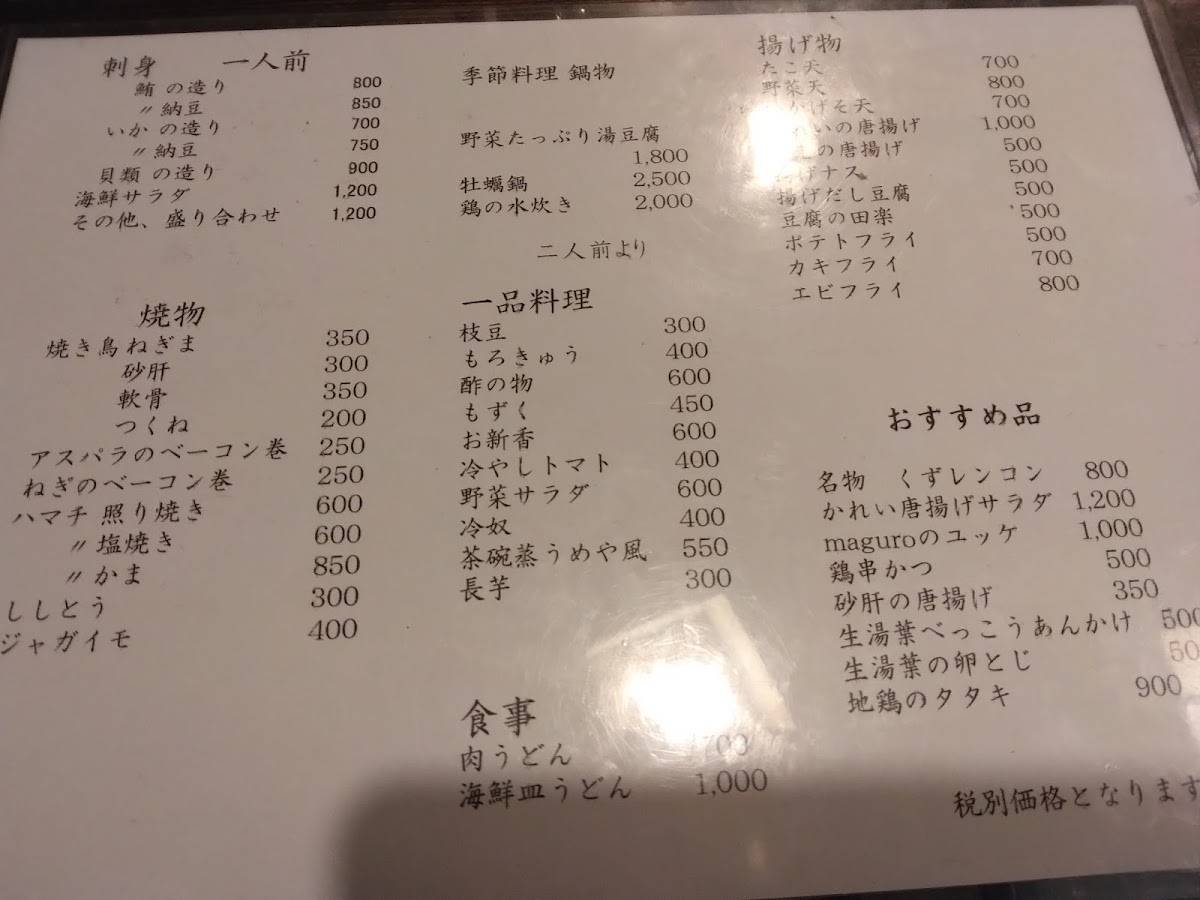 刺身　一人前
鮪 の造り 800
〃納豆 850
いか の造り 700
〃納豆 750
貝類 の造り 900
海鮮サラダ 1,200
その他、盛り合わせ 1,200
季節料理 鍋物
野菜たっぷり湯豆腐
1,800
牡蠣鍋 2,500
鶏の水炊き 2,000
二人前より
揚げ物
たこ天 700
野菜天 800
げそ天 700
いの唐揚げ 1,000
の唐揚げ 500
げナス 500
揚げだし豆腐 500
豆腐の田楽 500
ポテトフライ 500
カキフライ 700
エビフライ 800
焼物
焼き鳥ねぎま 350
砂肝 300
軟骨 350
つくね 200
アスパラのベーコン巻 250
ねぎのベーコン巻 250
ハマチ 照り焼き 600
〃塩焼き 600
〃かま 850
ししとう 300
ジャガイモ 400
一品料理
枝豆 300
もろきゅう 400
酢の物 600
もずく 450
お新香 600
冷やしトマト 400
野菜サラダ 600
冷奴 400
茶碗蒸うめや風 550
長芋 300
食事
肉うどん 700
海鮮皿うどん 1,000
おすすめ品
名物　くずレンコン 800
かれい唐揚げサラダ 1,200
maguroのユッケ 1,000
鶏串かつ 500
砂肝の唐揚げ 350
生湯葉べっこうあんかけ 500
生湯葉の卵とじ 50
地鶏のタタキ 900
税別価格となります